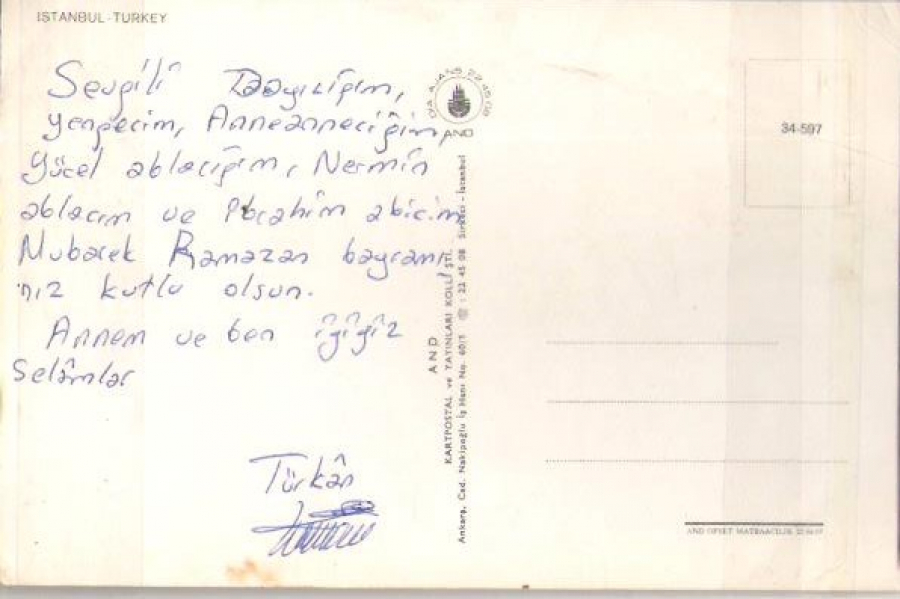 ISTANBUL - TURKEY
Sevgili Daayıcığım,
yengecim, Anneanneciğim,
Yücel ablacığım, Nermin
ablacım ve İbrahim abicim
Mubarek Ramazan bayramı
nız kutlu olsun.
Annem ve ben iyiyiz
Selâmlar
Türkân
AND
AND
KARTPOSTAL ve YAYINLARI KOLL. ŞTİ.
Ankara, Cad. Nakipoğlu İş Hanı No. 60/1 : 22 45 08 Sirkeci - İstanbul
34-597
AND OFSET MATBAACILIK